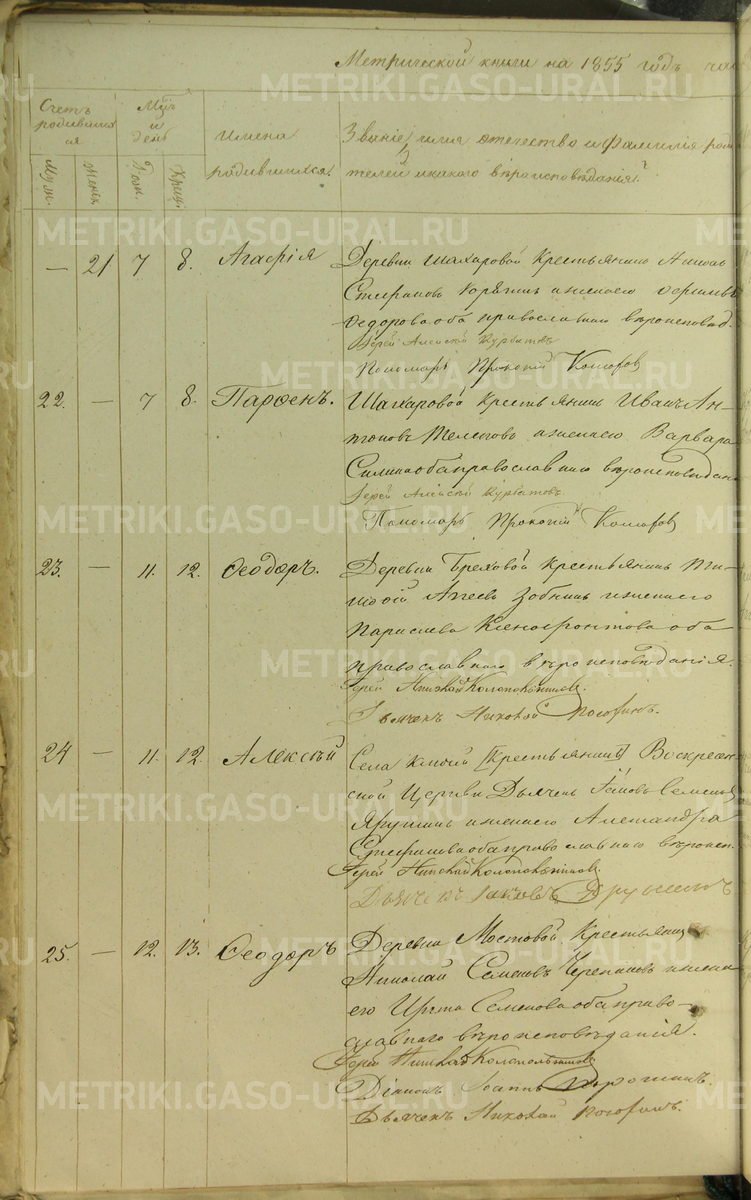 Метрической книги на 1855 годъ
Счетъ родившихся
Муж.
Женск.
Мѣс. и день
Рож.
Крещ.
Имена родившихся.
Званіе, имя отечество и фамилія роди-
телей и какого вѣроисповѣданія.
— 21 7 8. Агафія
Деревни Шахаровой Крестьянинъ
Стефановъ и жена его
Федорова оба православнаго вѣроисповед.
Іерей Алексѣй Курбатовъ
Пономарь Прокопій Комаровъ
22. — 7 8. Парфенъ.
Шахаровой Крестьянинъ Иванъ Ан-
тоновъ и жена его Варвара
Силина оба православнаго вѣроисповѣдан
Іерей Алексѣй Курбатовъ
Пономарь Прокопій Комаровъ
23. — 11. 12. Ѳеодоръ.
Деревни Бреховой Крестьянинъ Ти-
мофей Агеевъ Зобнинъ и жена его
Ксенофонтова оба
православнаго вѣроисповѣданія.
Іерей Николай Колокольниковъ
Дьячекъ Николай
24 — 11. 12. Алексѣй
Села [Крестьянинъ] Воскресен-
ской Церкви Дьячекъ Іаковъ Семеновъ
Ярушинъ и жена его Александра
Стефанова оба православнаго вѣроисп.
Іерей Николай Колокольниковъ
Дьячекъ Іаковъ Ярушинъ
25. — 12. 13. Ѳеодоръ
Деревни Мостовой Крестьянинъ
Николай Семеновъ Черепановъ и жена
его Семенова оба право-
славнаго вѣроисповѣданія.
Іерей Николай Колокольниковъ
Діаконъ Іоаннъ
Дьячекъ Николай
METRIKI.GASO-URAL.RU